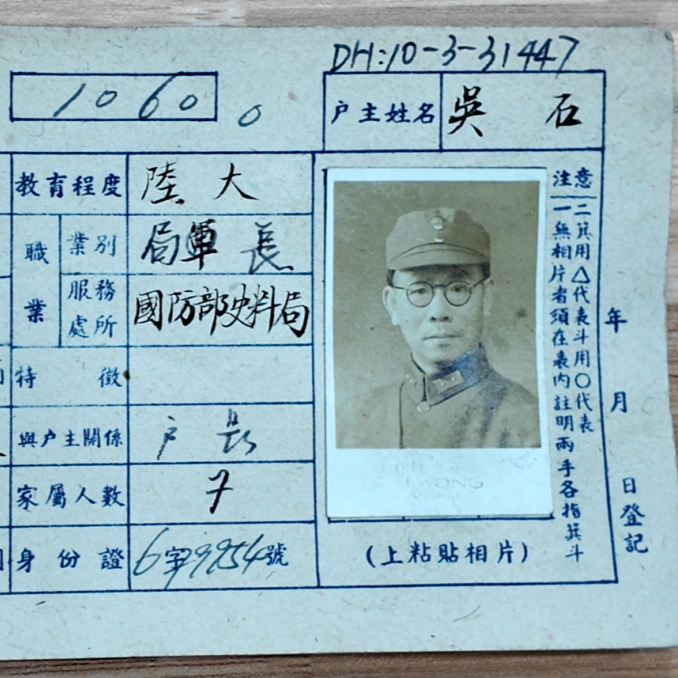 DH:10-3-31447
10600
户主姓名 吳石
教育程度 陸大
職業 業別 局軍長
服務處所 國防部史料局
特徵
與户主關係 户長
家屬人數 7
身份證 6字9954號
注意
一無相片者須在表內註明兩手各指箕斗
二箕用△代表斗用○代表
WONG
(上粘貼相片)
年月日登記